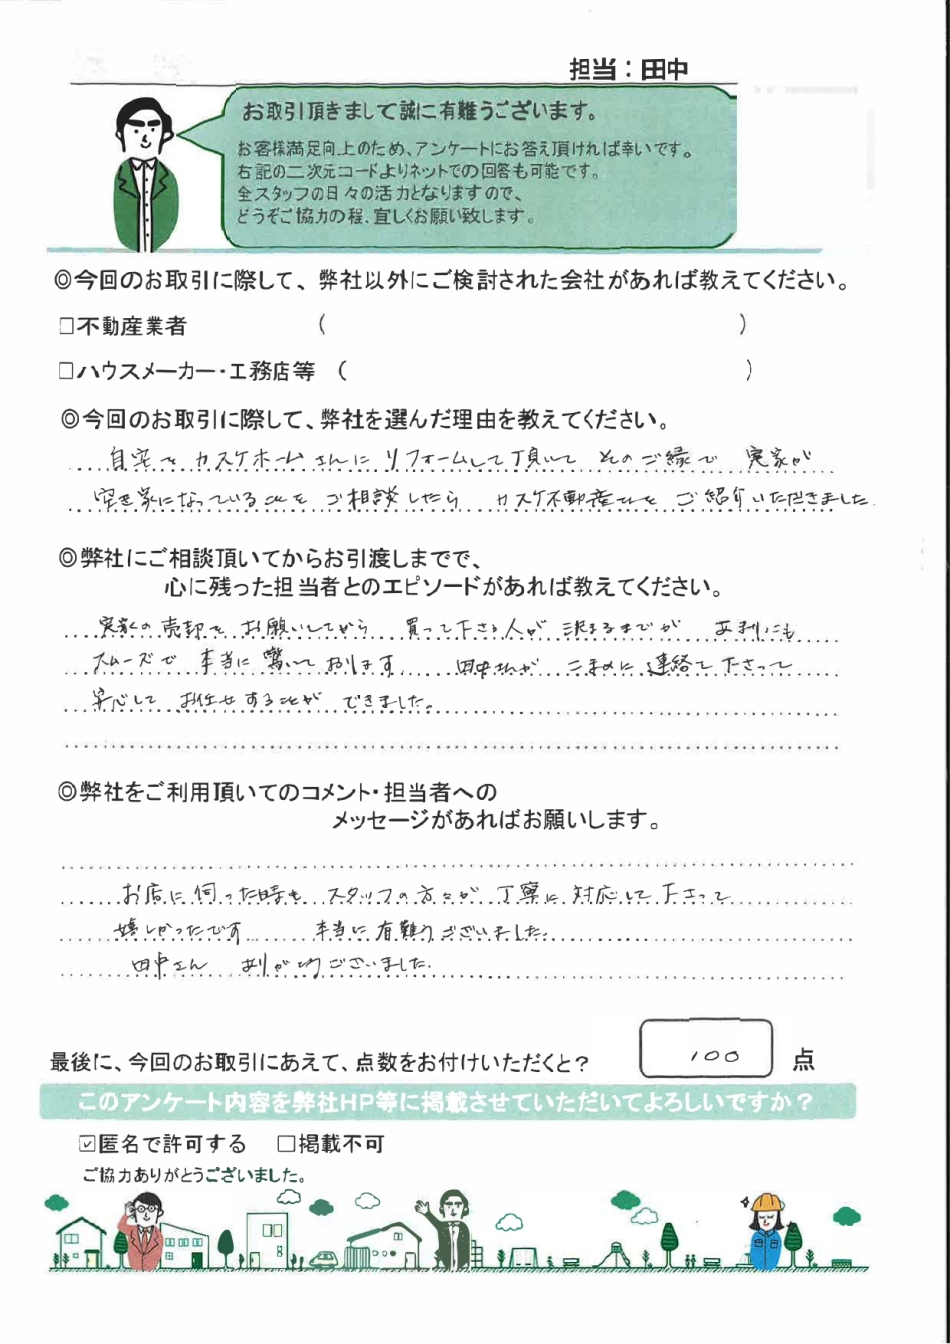 担当：田中
お取引頂きまして誠に有難うございます。
お客様満足向上のため、アンケートにお答え頂ければ幸いです。
右記の二次元コードよりネットでの回答も可能です。
全スタッフの日々の活力となりますので、
どうぞご協力の程、宜しくお願い致します。
◎今回のお取引に際して、弊社以外にご検討された会社があれば教えてください。
□不動産業者 （ ）
□ハウスメーカー・工務店等 （ ）
◎今回のお取引に際して、弊社を選んだ理由を教えてください。
自宅をカスケホームさんにリフォームして頂いて そのご縁で 実家が
空き家になっていることを ご相談したら カスケ不動産さんを ご紹介いただきました
◎弊社にご相談頂いてからお引渡しまでで、
心に残った担当者とのエピソードがあれば教えてください。
実家の売却を お願いしてから 買って下さる人が 決まるまでが あまりにも
スムーズで 本当に 驚いて おります 田中さんが こまめに 連絡して下さって
安心して お任せすることが できました。
◎弊社をご利用頂いてのコメント・担当者への
メッセージがあればお願いします。
お店に 伺った時も スタッフの方々が 丁寧に 対応して 下さって
嬉しかったです 本当に 有難うございました。
田中さん ありがとうございました.
最後に、今回のお取引にあえて、点数をお付けいただくと？ 100 点
このアンケート内容を弊社HP等に掲載させていただいてよろしいですか？
☑匿名で許可する □掲載不可
ご協力ありがとうございました。